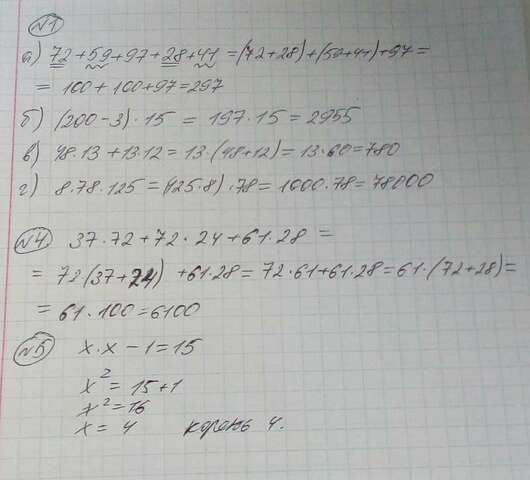 №1
а) 72+59+97+28+41=(72+28)+(59+41)+97=
= 100+100+97=297
б) (200-3)·15 = 197·15 = 2955
в) 48·13+13·12=13·(48+12)=13·60=780
г) 8·78·125=(125·8)·78=1000·78=78000
№4 37·72+72·24+61·28 =
= 72(37+24) +61·28=72·61+61·28=61·(72+28)=
= 61·100=6100
№5 x·x-1=15
x²=15+1
x²=16
x=4 корень 4.